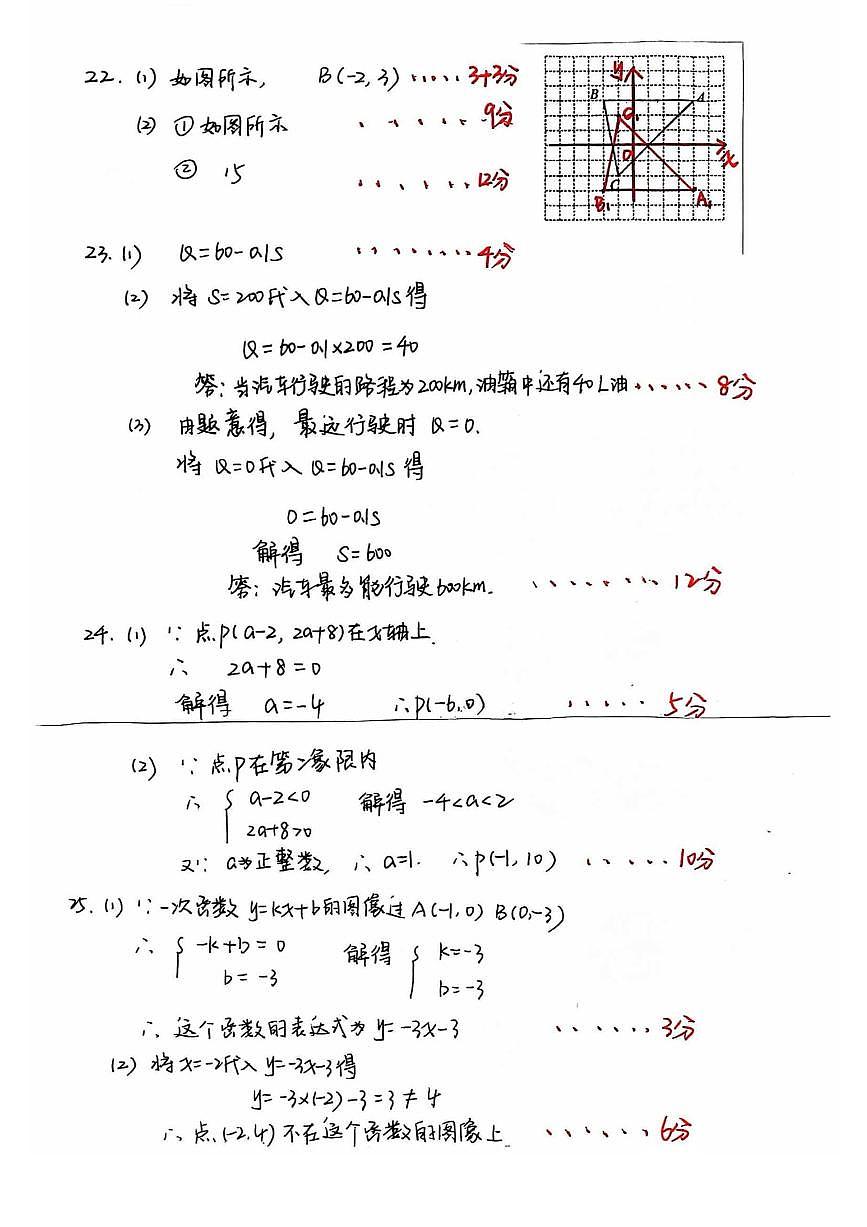 22. (1) 如图所示, B(-2,3) ...... 3+3分
(2) ① 如图所示 ...... 9分
② 15 ...... 12分
y
B A
C₁
O
x
C
B₁ A₁
23. (1) Q=60-0.1S ........ 4分
(2) 将 S=200代入Q=60-0.1S得
Q=60-0.1×200=40
答:当汽车行驶的路程为200km,油箱中还有40L油...... 8分
(3) 由题意得, 最远行驶时 Q=0.
将 Q=0代入 Q=60-0.1S 得
0=60-0.1S
解得 S=600
答:汽车最多能行驶600km. ........ 12分
24. (1) ∵点P(a-2, 2a+8)在x轴上.
∴ 2a+8=0
解得 a=-4 ∴P(-6,0) ...... 5分
(2) ∵点P在第二象限内
∴ { a-2<0 解得 -4<a<2
2a+8>0
又∵ a为正整数, ∴ a=1. ∴P(-1,10) ..... 10分
25. (1) ∵一次函数 y=kx+b的图像过A(-1,0) B(0,-3)
∴ { -k+b=0 解得 { k=-3
b=-3 b=-3
∴ 这个函数的表达式为 y=-3x-3 ...... 3分
(2) 将x=-2代入 y=-3x-3得
y=-3×(-2)-3=3≠4
∴点(-2,4)不在这个函数的图像上. ...... 6分